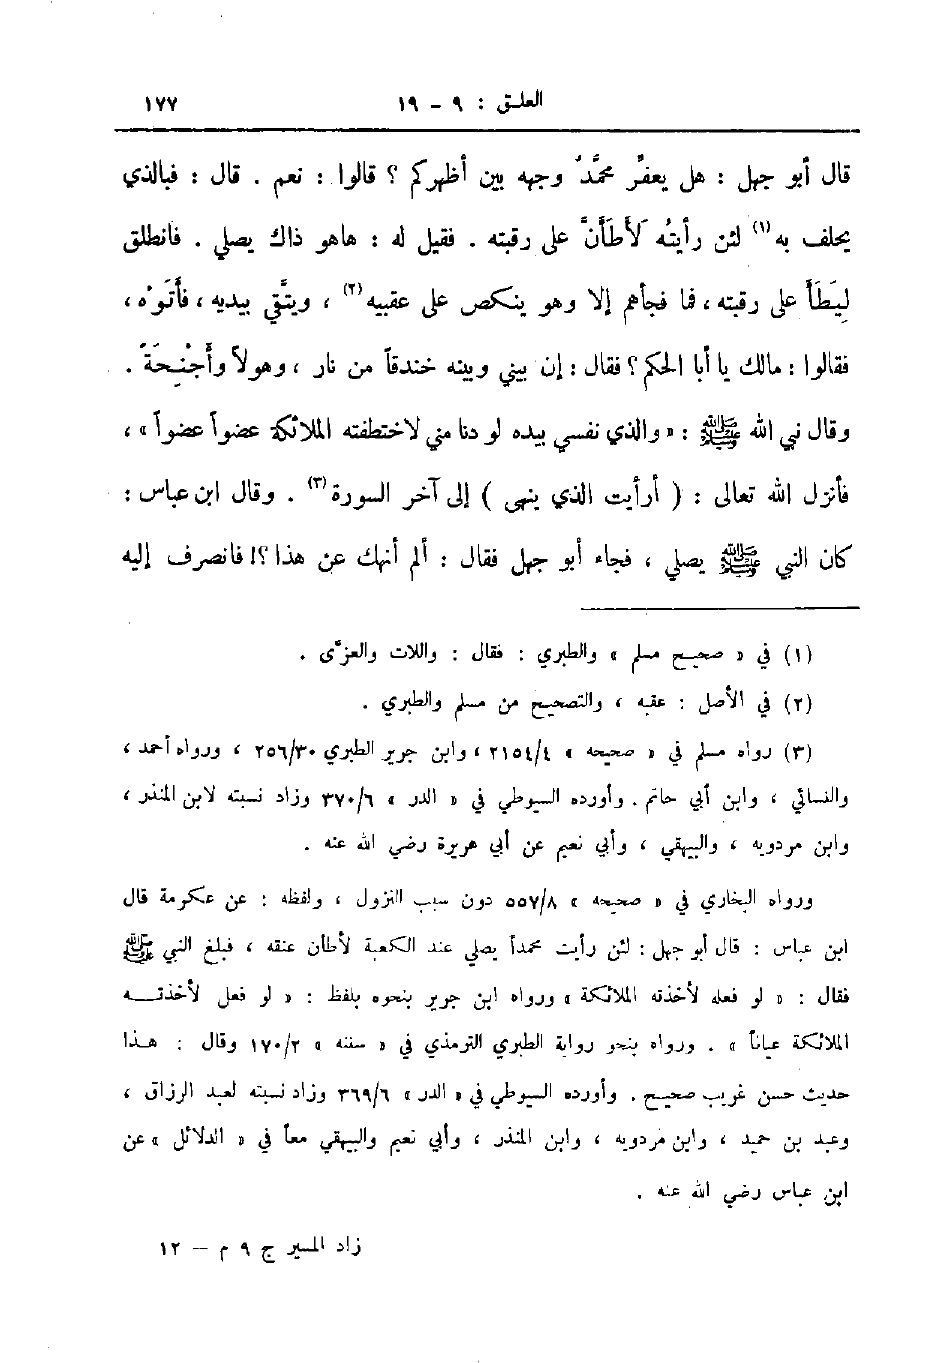 العلق : ٩ - ١٩ ١٧٧
قال أبو جهل : هل يعفِّر محمَّدٌ وجهه بين أظهركم ؟ قالوا : نعم . قال : فبالذي
يحلف به (١) لئن رأيتُه لَأَطَأَنَّ على رقبته . فقيل له : هاهو ذاك يصلي . فانطلق
لِيَطَأَ على رقبته ، فما فجأهم إلا وهو ينكص على عقبيه (٢) ، ويتَّقي بيديه ، فأَتَوْه ،
فقالوا : مالك يا أبا الحكم ؟ فقال : إن بيني وبينه خندقاً من نار ، وهولاً وأَجْنِحَةً .
وقال نبي الله ﷺ : « والذي نفسي بيده لو دنا مني لاختطفته الملائكة عضواً عضواً » ،
فأنزل الله تعالى : ( أرأيت الذي ينهى ) إلى آخر السورة (٣) . وقال ابن عباس :
كان النبي ﷺ يصلي ، فجاء أبو جهل فقال : ألم أنهك عن هذا ؟! فانصرف إليه
(١) في « صحيح مسلم » والطبري : فقال : واللات والعزَّى .
(٢) في الأصل : عقبه ، والتصحيح من مسلم والطبري .
(٣) رواه مسلم في « صحيحه » ٢١٥٤/٤ ، وابن جرير الطبري ٢٥٦/٣٠ ، ورواه أحمد ،
والنسائي ، وابن أبي حاتم . وأورده السيوطي في « الدر » ٣٧٠/٦ وزاد نسبته لابن المنذر ،
وابن مردويه ، والبيهقي ، وأبي نعيم عن أبي هريرة رضي الله عنه .
ورواه البخاري في « صحيحه » ٥٥٧/٨ دون سبب النزول ، ولفظه : عن عكرمة قال
ابن عباس : قال أبو جهل : لئن رأيت محمداً يصلي عند الكعبة لأطأن عنقه ، فبلغ النبي ﷺ
فقال : « لو فعله لأخذته الملائكة » ورواه ابن جرير بنحوه بلفظ : « لو فعل لأخذتـــه
الملائكة عياناً » . ورواه بنحو رواية الطبري الترمذي في « سننه » ١٧٠/٢ وقال : هــذا
حديث حسن غريب صحيح . وأورده السيوطي في « الدر » ٣٦٩/٦ وزاد نسبته لعبد الرزاق ،
وعبد بن حميد ، وابن مردويه ، وابن المنذر ، وأبي نعيم والبيهقي معاً في « الدلائل » عن
ابن عباس رضي الله عنه .
زاد المسير ج ٩ م - ١٢